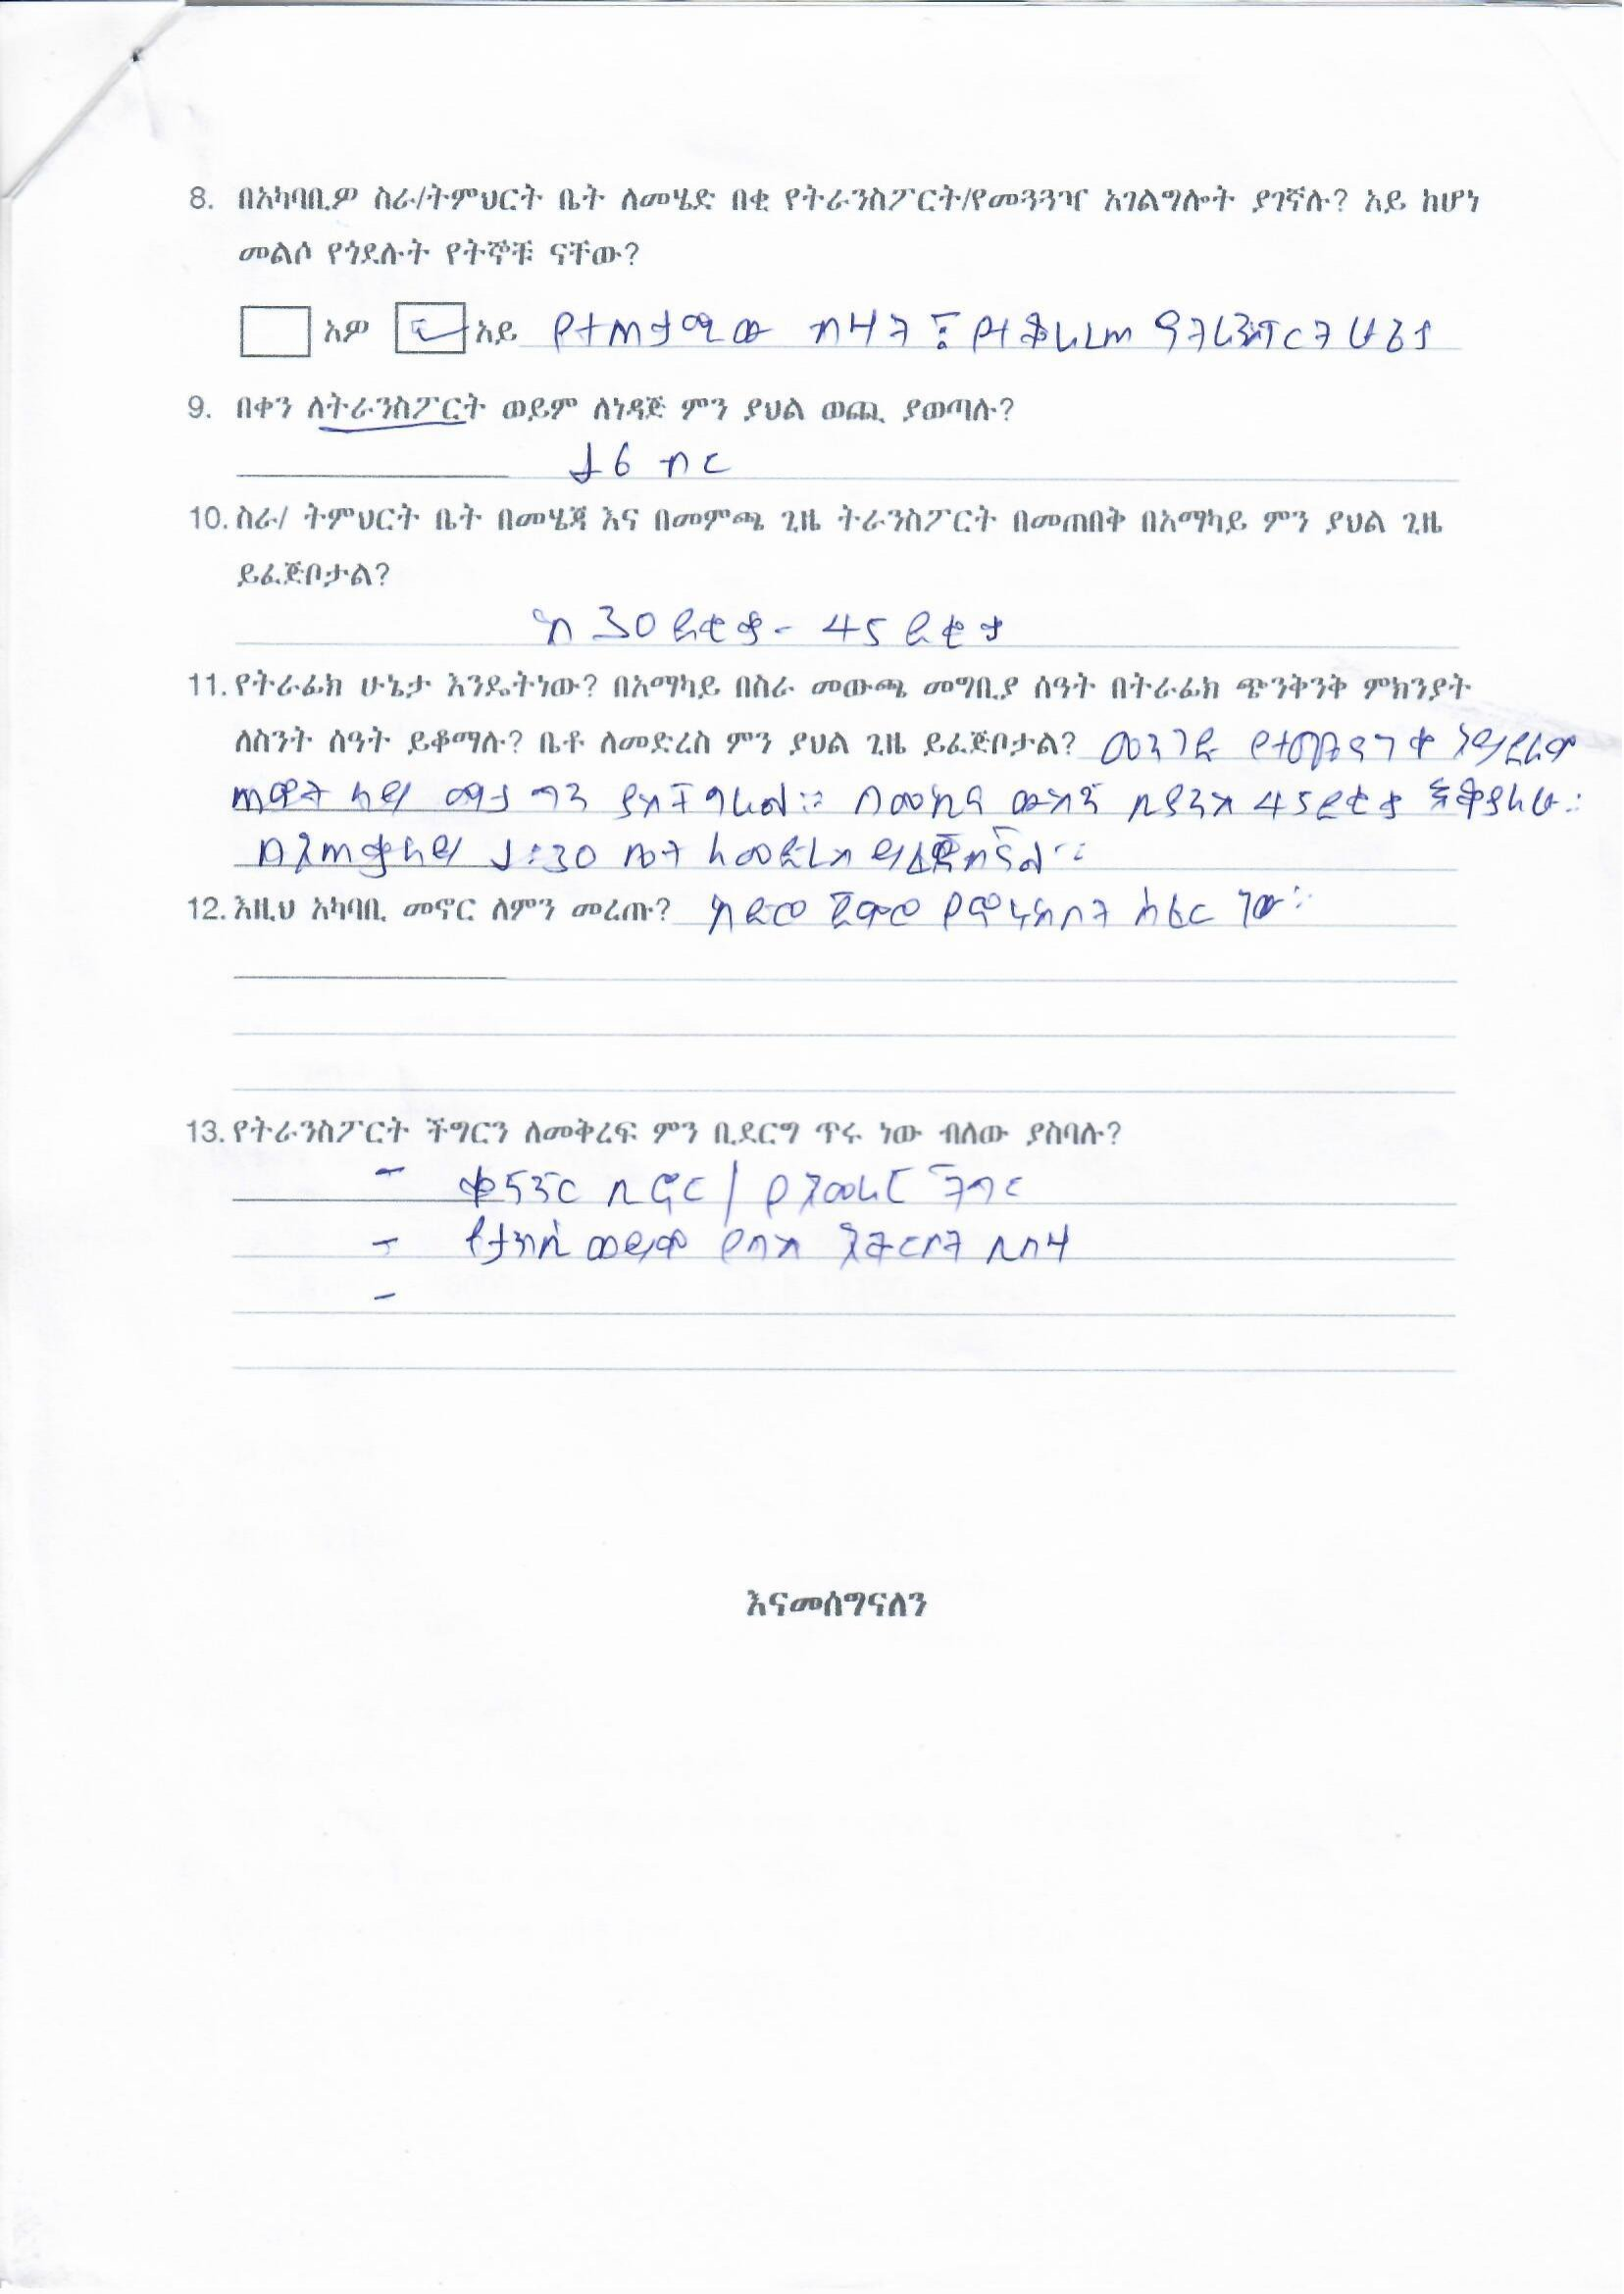 8. በአካባቢዎ ስራ/ትምህርት ቤት ለመሄድ በቂ የትራንስፖርት/የመጓጓዣ አገልግሎት ያገኛሉ? አይ ከሆነ
መልሶ የጎደሉት የትኞቹ ናቸው?
አዎ አይ የተጠቃሚው ብዛት፤ የተቆራረጠ የትራንስፖርት ሁኔታ
9. በቀን ለትራንስፖርት ወይም ለነዳጅ ምን ያህል ወጪ ያወጣሉ?
16 ብር
10. ስራ/ ትምህርት ቤት በመሄጃ እና በመምጫ ጊዜ ትራንስፖርት በመጠበቅ በአማካይ ምን ያህል ጊዜ
ይፈጅቦታል?
ከ 30 ደቂቃ - 45 ደቂቃ
11. የትራፊክ ሁኔታ እንዴትነው? በአማካይ በስራ መውጫ መግቢያ ሰዓት በትራፊክ ጭንቅንቅ ምክንያት
ለስንት ሰዓት ይቆማሉ? ቤቶ ለመድረስ ምን ያህል ጊዜ ይፈጅቦታል? መንገዱ
ጠዋት ላይ ማታ ግን ። በመኪና ውስጥ ቢያንስ 45 ደቂቃ እቆያለሁ።
በአጠቃላይ 1:30 ሰዓት ለመድረስ ይፈጅብኛል።
12. እዚህ አካባቢ መኖር ለምን መረጡ? ከድሮ ጀምሮ የምኖርበት ሰፈር ነው።
13. የትራንስፖርት ችግርን ለመቅረፍ ምን ቢደርግ ጥሩ ነው ብለው ያስባሉ?
- ቁጥጥር ቢኖር / የአመራር ችግር
- የታክሲ ወይም የባስ እጥረት ቢበዛ
-
እናመሰግናለን